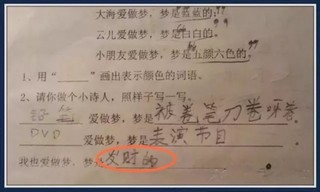 大海爱做梦，梦是蓝蓝的。
云儿爱做梦，梦是白白的。
小朋友爱做梦，梦是五颜六色的。
1. 用“____”画出表示颜色的词语。
2. 请你做个小诗人，照样子写一写。
铅笔爱做梦，梦是被卷笔刀卷呀卷
DVD爱做梦，梦是表演节目
我也爱做梦，梦是发财的